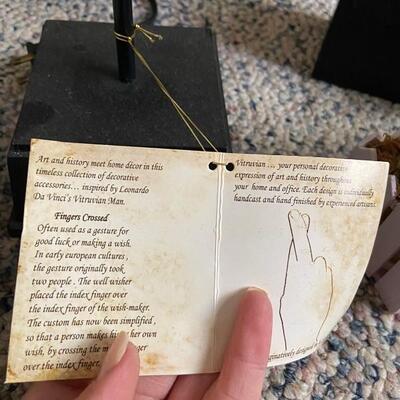 Art and history meet home décor in this
timeless collection of decorative
accessories… inspired by Leonardo
Da Vinci's Vitruvian Man.
Fingers Crossed
Often used as a gesture for
good luck or making a wish.
In early european cultures ,
the gesture originally took
two people . The well wisher
placed the index finger over
the index finger of the wish-maker.
The custom has now been simplified ,
so that a person makes his/her own
wish, by crossing the finger
over the index finger.
Vitruvian … your personal decorative
expression of art and history throughout
your home and office. Each design is individually
handcast and hand finished by experienced artisans.
designed